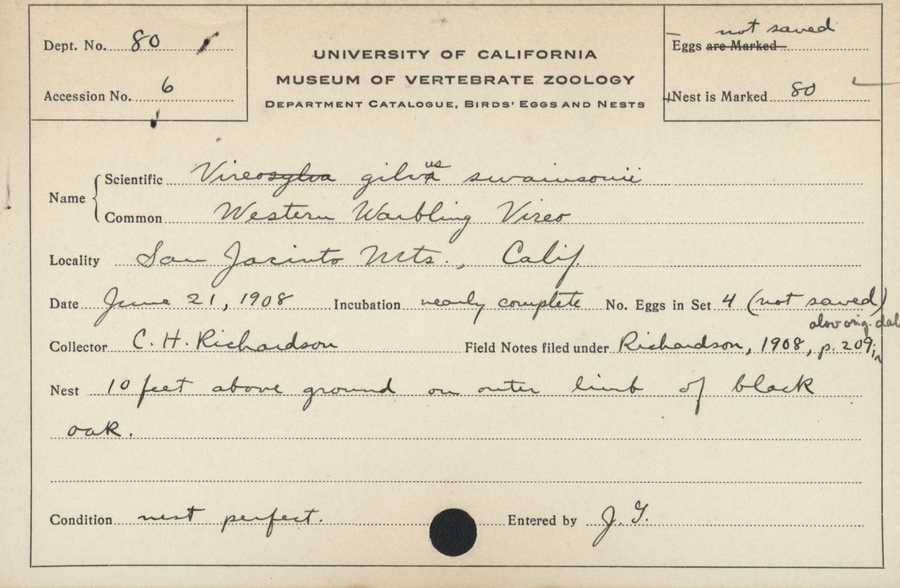 Dept. No. 80
Accession No. 6
UNIVERSITY OF CALIFORNIA
MUSEUM OF VERTEBRATE ZOOLOGY
DEPARTMENT CATALOGUE, BIRDS' EGGS AND NESTS
not saved
Eggs are Marked
Nest is Marked 80
Name
Scientific Vireosylva gilvus swainsonii
Common Western Warbling Vireo
Locality San Jacinto Mts., Calif.
Date June 21, 1908 Incubation nearly complete No. Eggs in Set 4 (not saved)
also orig.
Collector C. H. Richardson Field Notes filed under Richardson, 1908, p. 209; in
Nest 10 feet above ground on outer limb of black
oak.
Condition nest perfect. Entered by J. G.